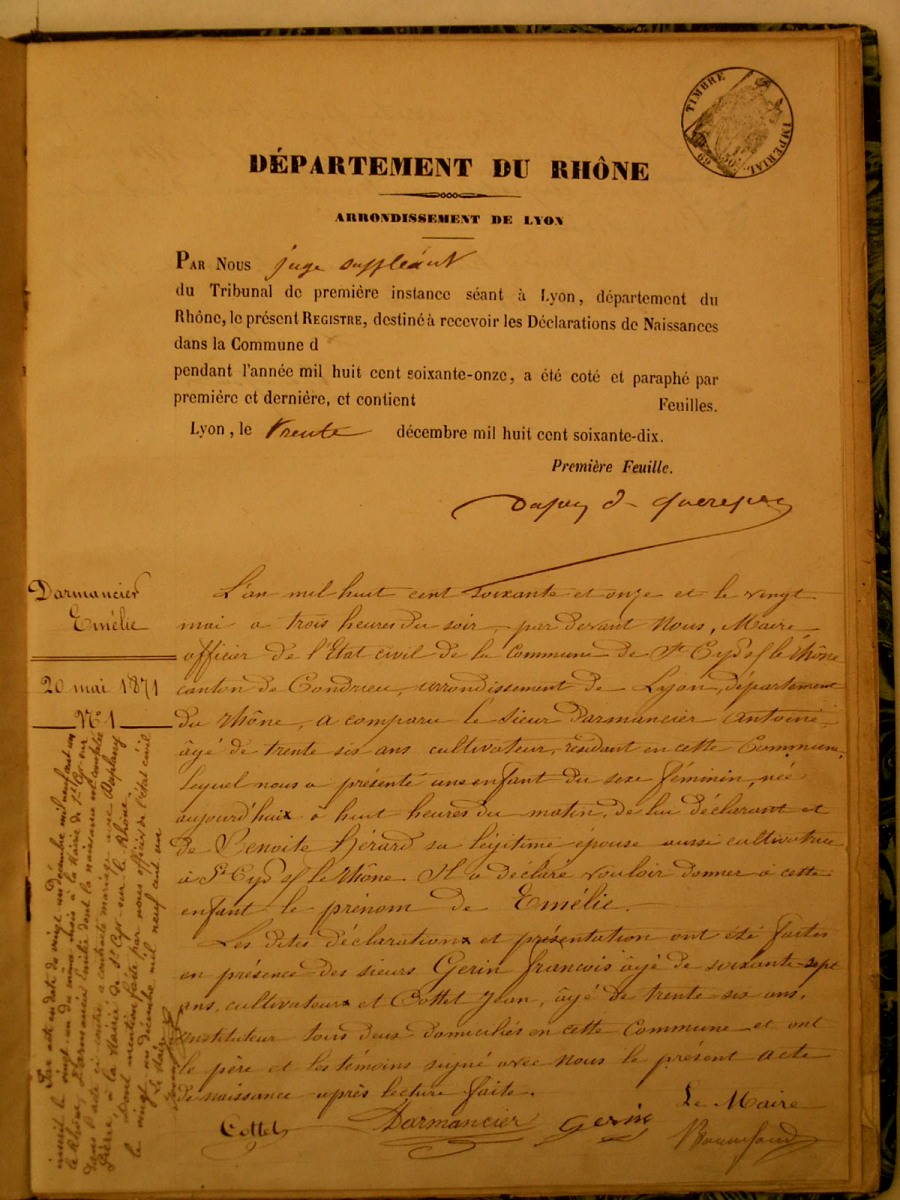 TIMBRE IMPERIAL
DÉPARTEMENT DU RHÔNE
ARRONDISSEMENT DE LYON
PAR NOUS juge suppléant
du Tribunal de première instance séant à Lyon, département du
Rhône, le présent REGISTRE, destiné à recevoir les Déclarations de Naissances
dans la Commune d
pendant l'année mil huit cent soixante-onze, a été coté et paraphé par
première et dernière, et contient Feuilles.
Lyon, le trente décembre mil huit cent soixante-dix.
Première Feuille.
Darmancier
Emélie
20 mai 1871
N° 1
L'an mil huit cent soixante et onze et le vingt
mai a trois heures du soir, par devant Nous, Maire
officier de l'Etat civil de la Commune de St Cyr s/ le Rhône
canton de Condrieu, arrondissement de Lyon, département
du Rhône, a comparu le sieur Darmancier Antoine
âgé de trente six ans cultivateur, résidant en cette Commune,
Lequel nous a présenté une enfant du sexe féminin, née
aujourd'hui à huit heures du matin, de lui déclarant et
de Benoite Gérard sa légitime épouse aussi cultivatrice
à St Cyr s/ le Rhône. Il a déclaré vouloir donner à cette
enfant le prénom de Emélie.
Les dites déclaration et présentation ont été faites
en présence des sieurs Gerin françois âgé de soixante-sept
ans, cultivateur et Cottet Jean, âgé de trente six ans,
instituteur tous deux domiciliés en cette Commune et ont
le père et les témoins signé avec nous le présent acte
de naissance après lecture faite.
Cottet Darmancier Gerin Le Maire
Par acte en date du vingt-un décembre mil neuf cent un
inscrit le vingt-un du même mois à la Mairie de St Cyr-sur
le Rhône, Darmancier Emélie dont la naissance est constatée
dans l'acte ci-contre a contracté mariage avec
Pierre, à la Mairie de St Cyr-sur-le Rhône.
Dont mention faite par nous officier de l'état civil
le vingt-un décembre mil neuf cent un
Le Maire